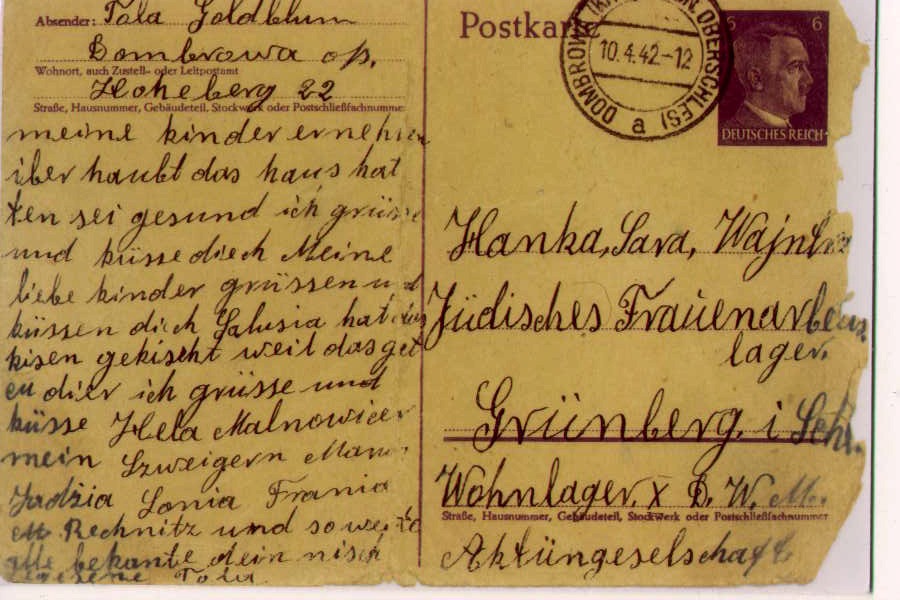 Absender: Tola Goldblum
Dombrowa o/s,
Wohnort, auch Zustell- oder Leitpostamt
Hoheberg 22
Straße, Hausnummer, Gebäudeteil, Stockwerk oder Postschließfachnumme
meine kinder ernehren
über haubt das haus hat
ten sei gesund ich grüsse
und küsse diech Meine
liebe kinder grüssen und
küssen dich Salusia hat
kisen gekischt weil das
dier ich grüsse und
küsse Hela Malnowicer
mein Szweigern
Jadzia Sonia Frania
Rechnitz und
alle bekante dein
Tola
Postkarte
DOMBROWA OBERSCHLES)
10.4.42-12
a
6
DEUTSCHES REICH
Hanka, Sara,
Jüdisches
lager.
Grünberg. i Schl.
Wohnlager. D. W. M.
Straße, Hausnummer, Gebäudeteil, Stockwerk oder Postschließfachnummer
Aktüngeselschaft